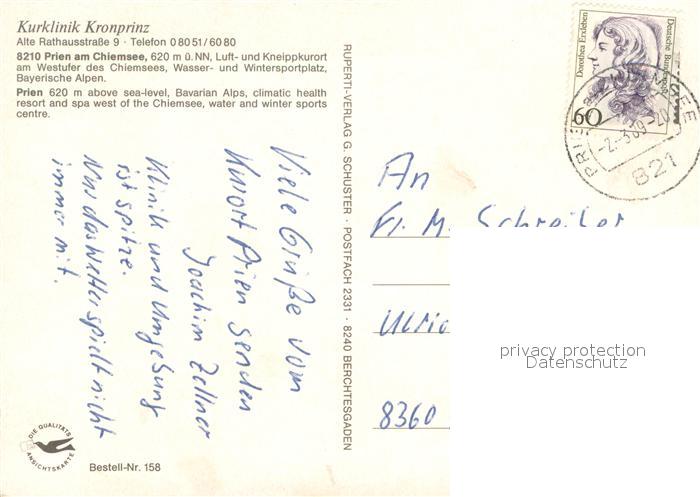 Kurklinik Kronprinz
Alte Rathausstraße 9 · Telefon 0 80 51/60 80
8210 Prien am Chiemsee, 620 m ü.NN, Luft- und Kneippkurort
am Westufer des Chiemsees, Wasser- und Wintersportplatz,
Bayerische Alpen.
Prien 620 m above sea-level, Bavarian Alps, climatic health
resort and spa west of the Chiemsee, water and winter sports
centre.
Viele Grüße vom
Kurort Prien senden
Joachim Zellner
Klinik und Umgebung
ist spitze.
Nur das Wetter spielt nicht
immer mit.
DIE QUALITÄTS
ANSICHTSKARTE
Bestell-Nr. 158
RUPERTI-VERLAG G. SCHUSTER · POSTFACH 2331 · 8240 BERCHTESGADEN
Dorothea Erxleben
Deutsche Bundespost
60
821
An
Fr. M. Schreiber
8360
privacy protection
Datenschutz